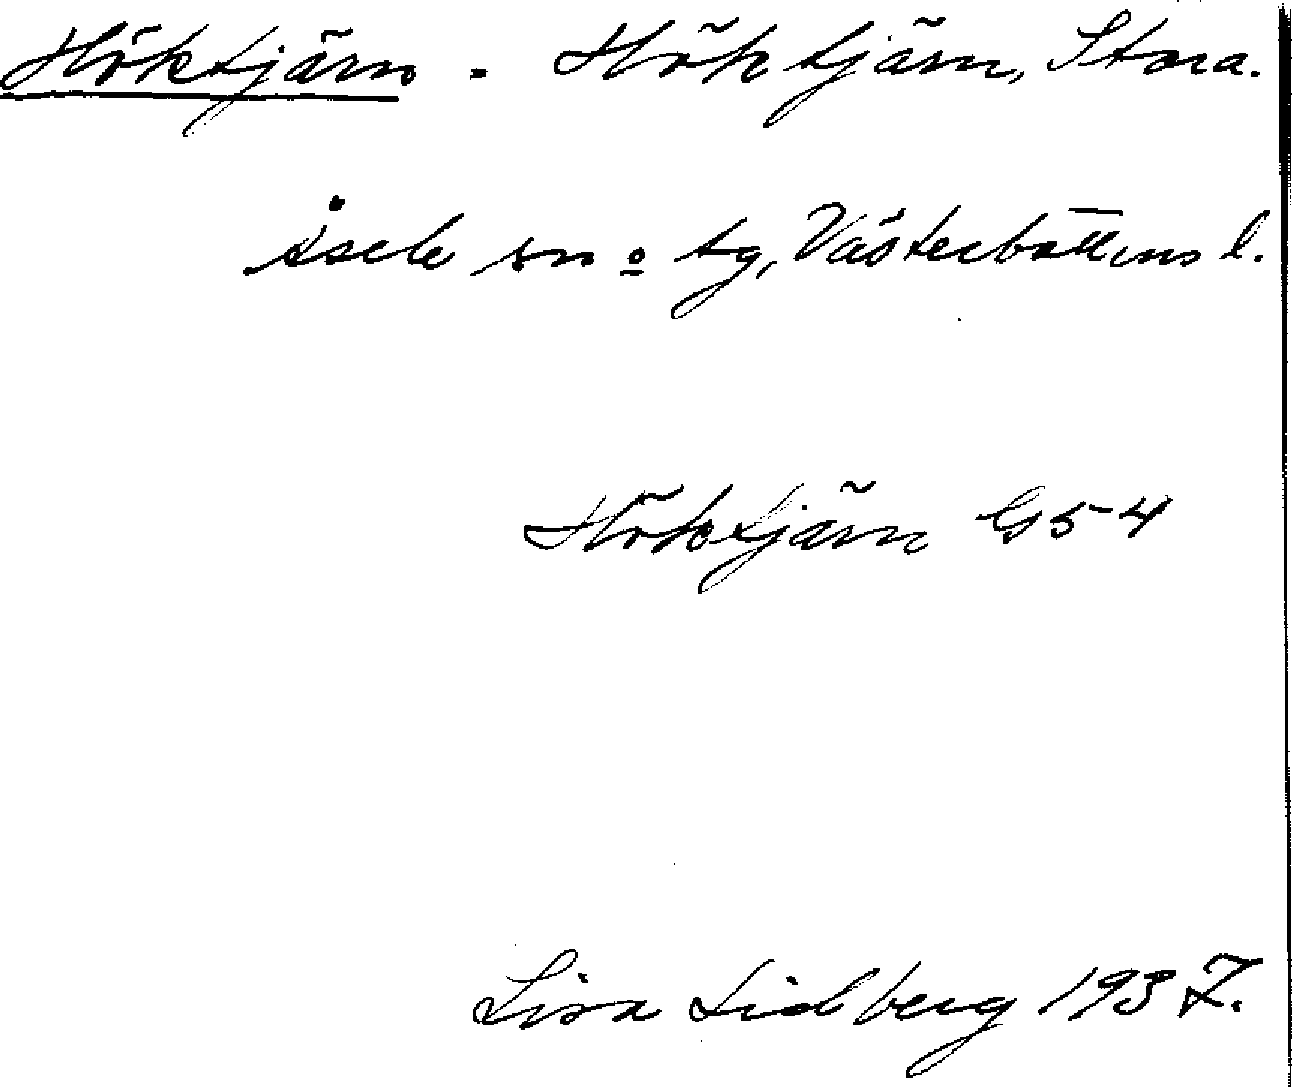 Höktjärn - Höktjärn, Stora.
Åsele sn o tg, Västerbottens l.
Höktjärn G54
Lisa Lidberg 1937.